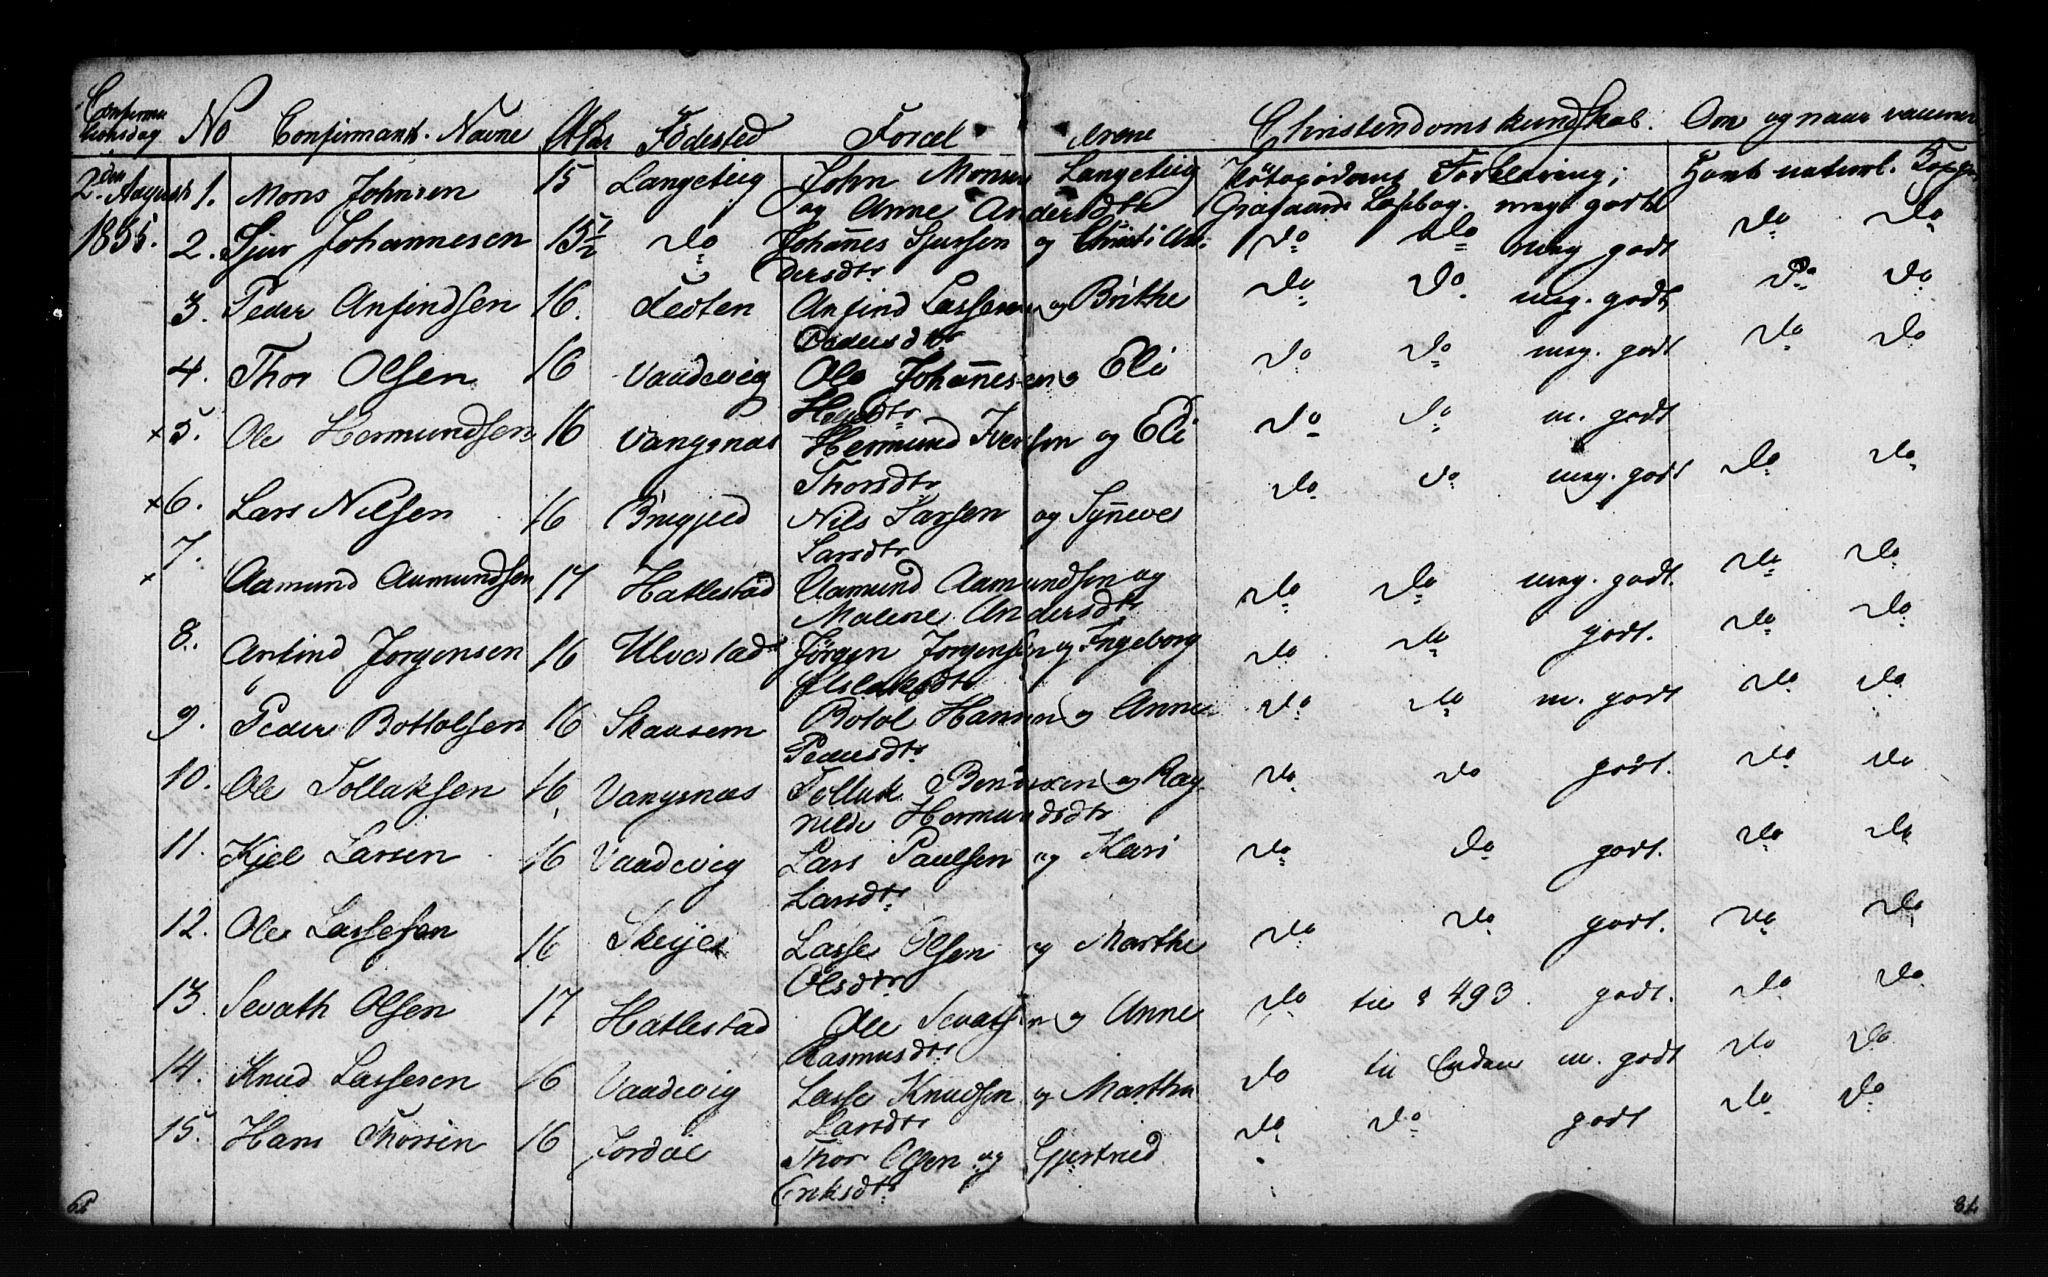 Confirma No Confirmant. Navne Alder Födested Foræl drene Christendomskundskab. Om og naar vaccine
tionsdag
2den August 1. Mons Johnsen 15 Langeteig John Monsen Langeteig Forklaring;
og Anne Andersdtr meget godt Havt naturl. Kopper
1835. 2. Sjur Johannesen 15 1/2 do Johañes Sjursen og Christi An- do do meg godt do do
dersdtr
3. Peder Anfindsen 16. Tedten Anfind Lassesen og Brithe do do meg. godt do do
Pedersdtr
4. Thor Olsen 16 Vaadevig Ole Johañesen og Eli do do meg. godt do do
5. Ole Hermundsen 16 Vangsnæs Hermund Iversen og Eli do do m. godt
Thorsdtr
6. Lars Nilsen 16 Nils Larsen og Syñeve do do meg. godt do do
Larsdtr
7. Aamund Aamundsen 17 Hatlestad Aamund Aamundsen og do do meg. godt. do do
Malene Andersdtr
8. Anfind Jörgensen 16 Ulvestad Jörgen Jörgensen og Ingeborg do do godt. do do
9. Peder Bottolfsen 16 Skaasem Botol Hansen og Anne do do m. godt do do
Pedersdtr
10. Ole Tollaksen 16 Vangsnæs Tollak og Rag do do godt. do do
nilde Hermundsdtr
11. Kjel Larsen 16 Vaadevig Lars Paulsen og Kari do do godt. do do
Larsdtr
12. Ole Lassesen 16 Lasse Olsen og Marthe do do godt. do do
Olsdtr
13. Sevath Olsen 17 Hatlestad Ole Sevatsen og Anne do til § 493. godt. do do
Rasmusdtr
14. Knud Lassesen 16 Vaadevig Lasse Knudsen og Martha do til Enden m. godt do do
Larsdtr
15. Hans Thorsen 16 Jordal Thor Olsen og Gjertrud do do godt do do
Eriksdtr